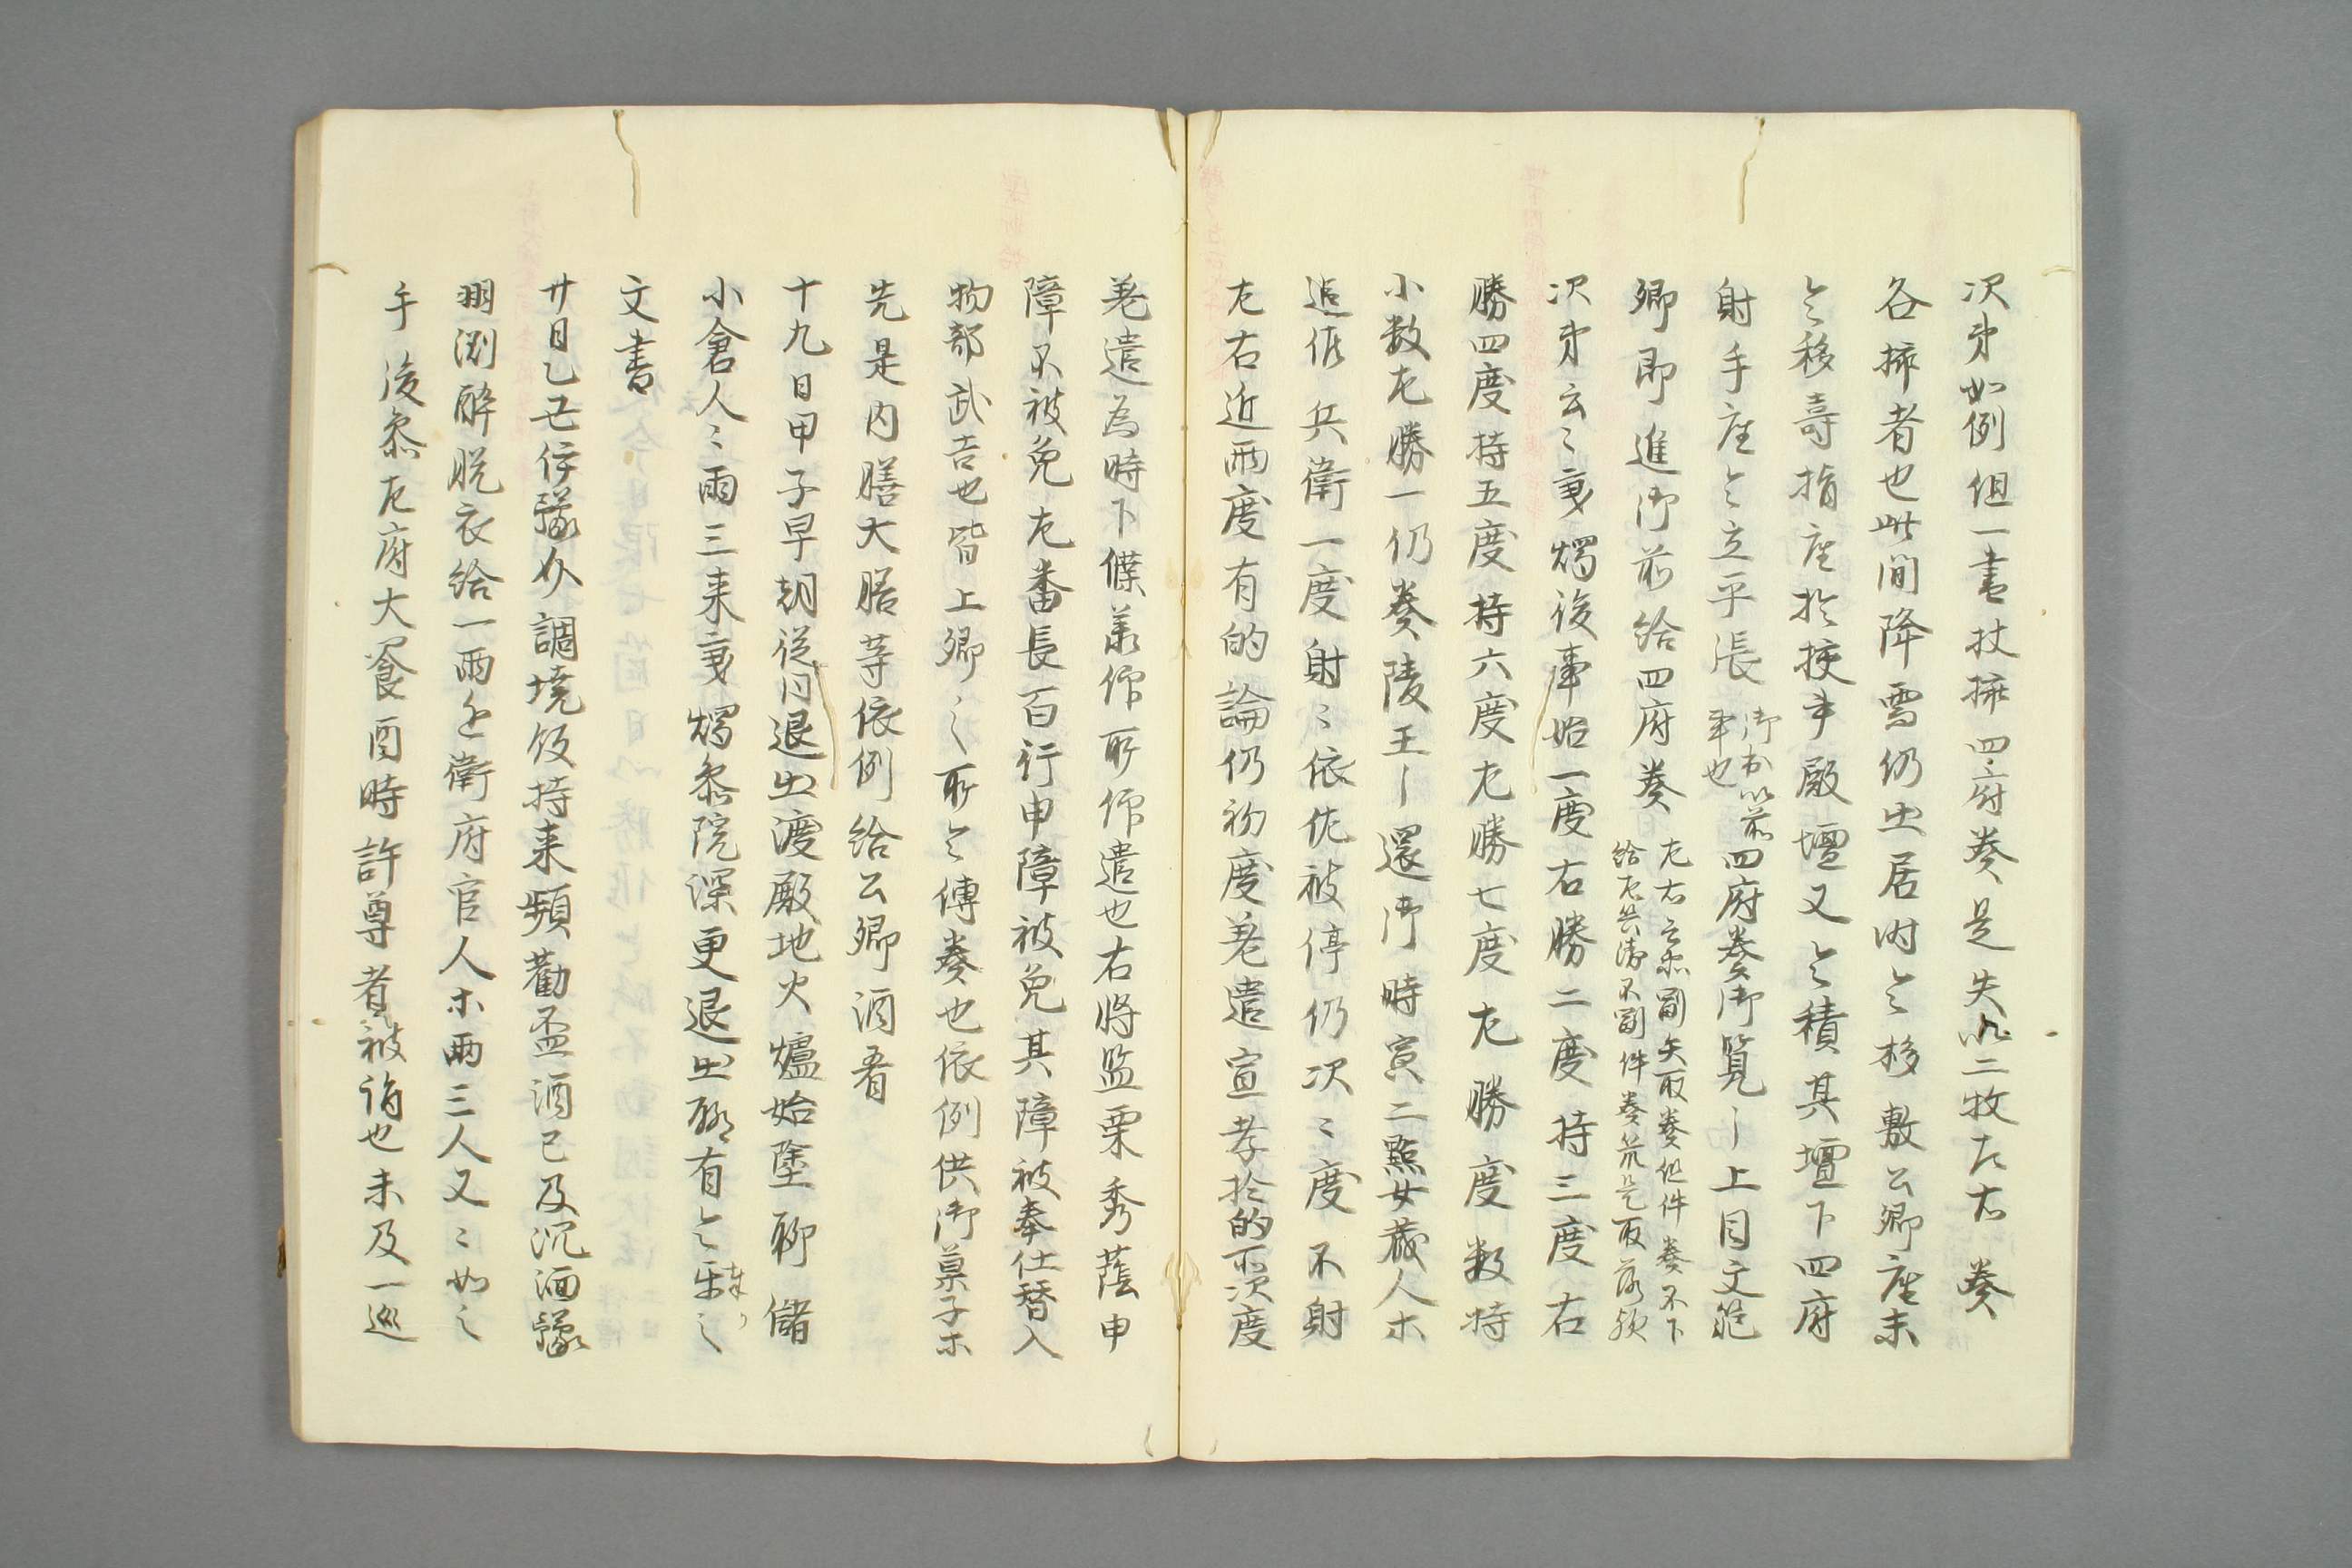 次第如例但一書杖挿四府奏是失以二枚左右奏
各挿者也此間降雪仍出居時令移敷公卿座末
令移寄指座於挍書殿壇又令積其壇下四府
射手座令立平張御出以前事也四府奏御覧〻上目文範
卿即進御前給四府奏左右令木副矢取奏但件奏不下給左兵衛不副件奏若是取落欤
次第云〻秉燭後事始一度右勝二度持三度右
勝四度持五度持六度左勝七度左勝度数持
小数左勝一仍奏陵王〻還御時寅二點女蔵人木
追依兵衛一度射〻依仰被停仍次〻度不射
左右近両度有的論仍初度差遣宣孝於的所次度
差遣為時下㒒兼仰所仰遣也右将監栗秀蔭申
障不被免左番長百行申障被免其障被奉仕替入
物部武吉也皆上卿之所令傳奏也依例供御菓子木
先是内膳大膳等依例給公卿酒肴
十九日甲子早朝従内退出渡殿地火爐始塗聊儲
小食人〻雨三来秉燭参院深更退出聊有令事之
文書
廿日乙丑伊豫介調境飯持来頻勸盃酒已及沉湎豫
羽渕酔脱衣給一両近衛府官人木両三人又〻如之
手後参左府大饗酉時許尊者被詣也未及一巡